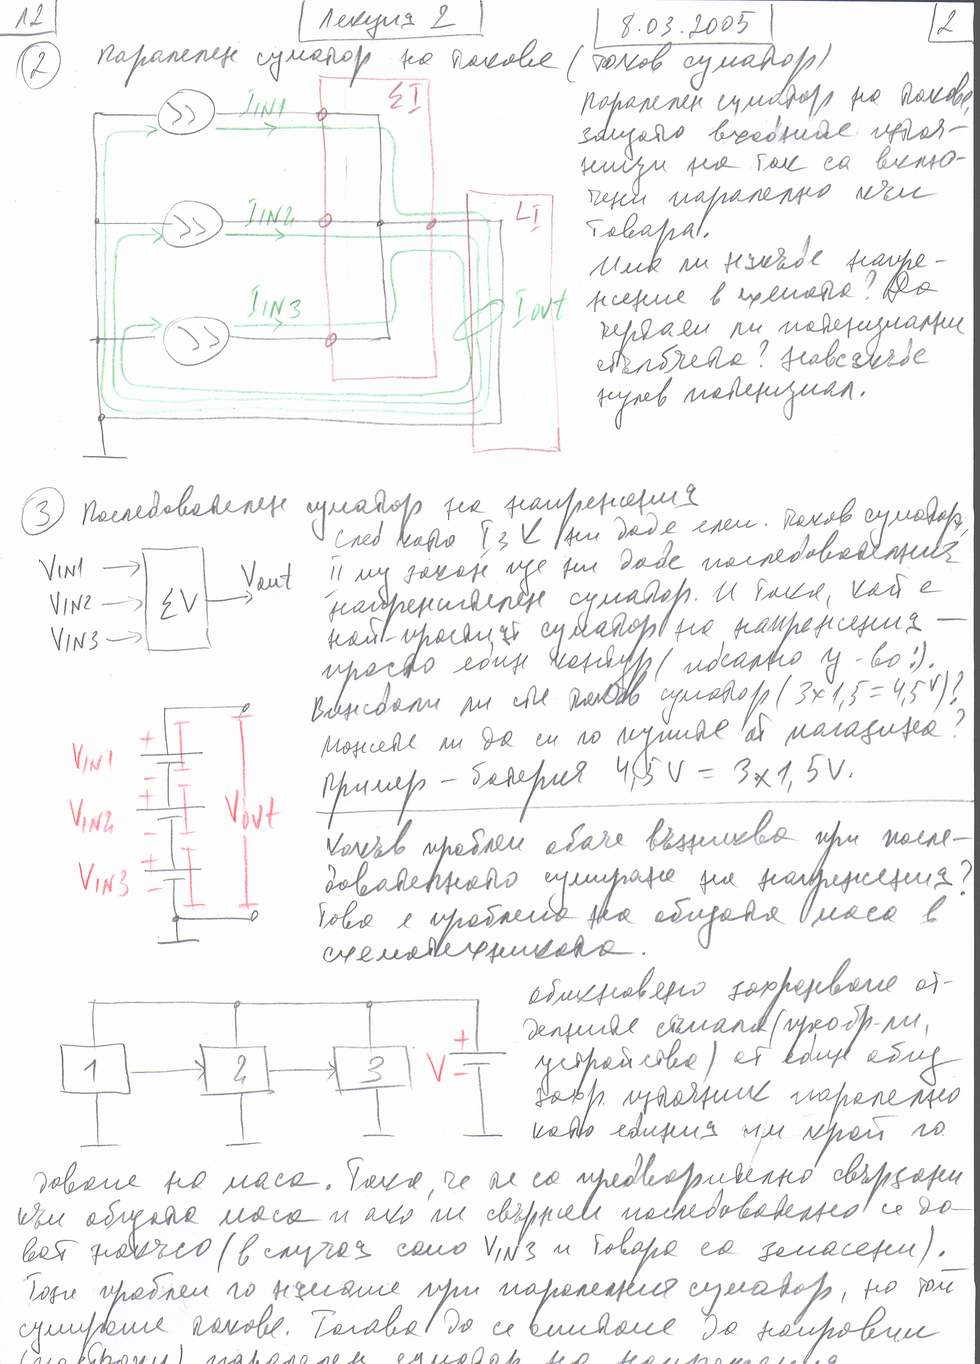 12
Лекция 2
8.03.2005
2
2 Паралелен суматор на токове (токов суматор)
ΣI
IIN1
IIN2
IIN3
LI
IOUT
Паралелен суматор на токове,
защото входните източ-
ници на ток са вклю-
чени паралелно към
товара.
Има ли някъде напре-
жение в схемата? Да
чертаем ли потенциални
стълбчета? Навсякъде
нулев потенциал.
3 Последователен суматор на напрежения
VIN1
VIN2
VIN3
ΣV
Vout
След като I з К ни даде елем. токов суматор,
II му закон ще ни даде последователния
напрежителен суматор. И така, кой е
най-простият суматор на напрежения —
просто един контур (идеално у-во!).
Виждали ли сте такъв суматор (3x1,5=4,5V)?
Можете ли да си го купите от магазина?
Пример – батерия 4,5V = 3x1,5V.
VIN1
+
-
VIN2
+
-
VIN3
+
-
VOUT
Какъв проблем обаче възниква при после-
дователното сумиране на напрежения?
Това е проблема на общата маса в
схемотехниката.
1
2
3
V
+
-
Обикновено захранваме от-
делните стъпала (преобр-ли,
устройства) от един общ
захр. източник паралелно
като единия им край го
даваме на маса. Така, че те са предварително свързани
към общата маса и ако ги свържем последователно се да-
ват накъсо (в случая само VIN3 и товара са замасени).
Този проблем го нямаше при паралелния суматор, но той
сумираше токове. Тогава да се опитаме да направим
паралелен суматор на напрежения